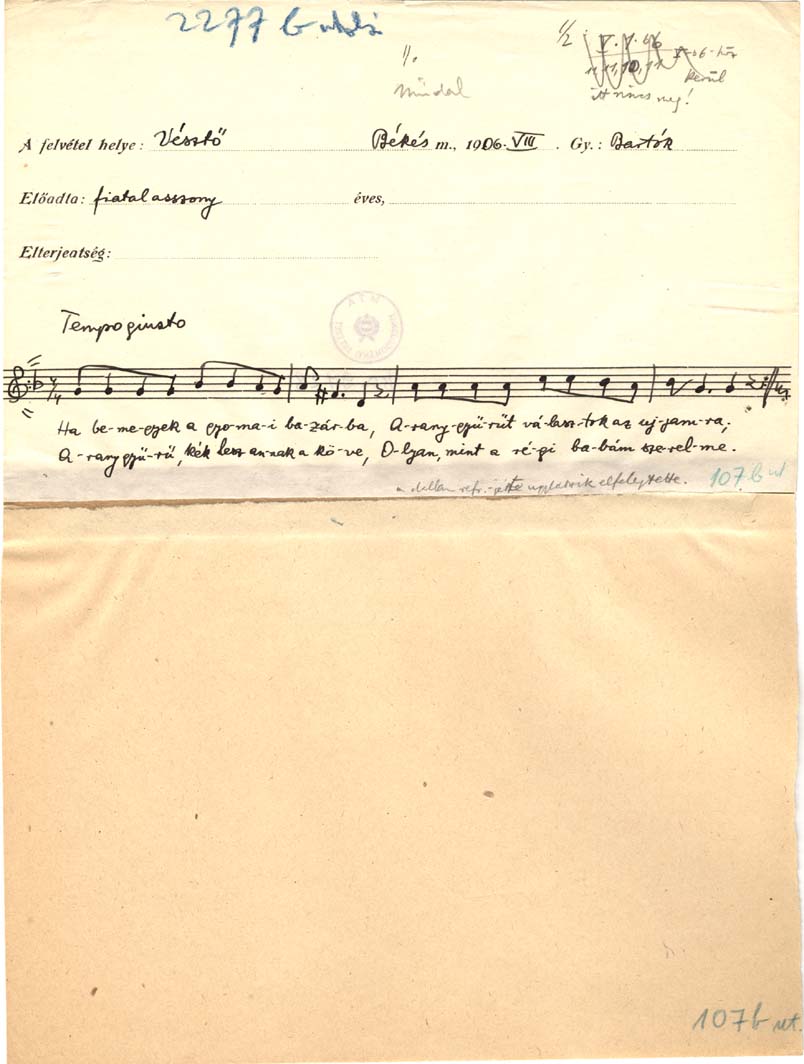 2277 b
1/2
Műdal
itt nincs meg!
A felvétel helye: Vésztő Békés m., 1906. VIII. Gy.: Bartók
Előadta: fiatalasszony éves,
Elterjedtség:
Tempo giusto
Ha be-me-gyek a gyo-ma-i ba-zár-ba, A-rany-gyű-rűt vá-lasz-tok az uj-jam-ra,
A-rany gyű-rű, kék lesz an-nak a kö-ve, O-lyan, mint a ré-gi ba-bám sze-rel-me.
107 b
107 b